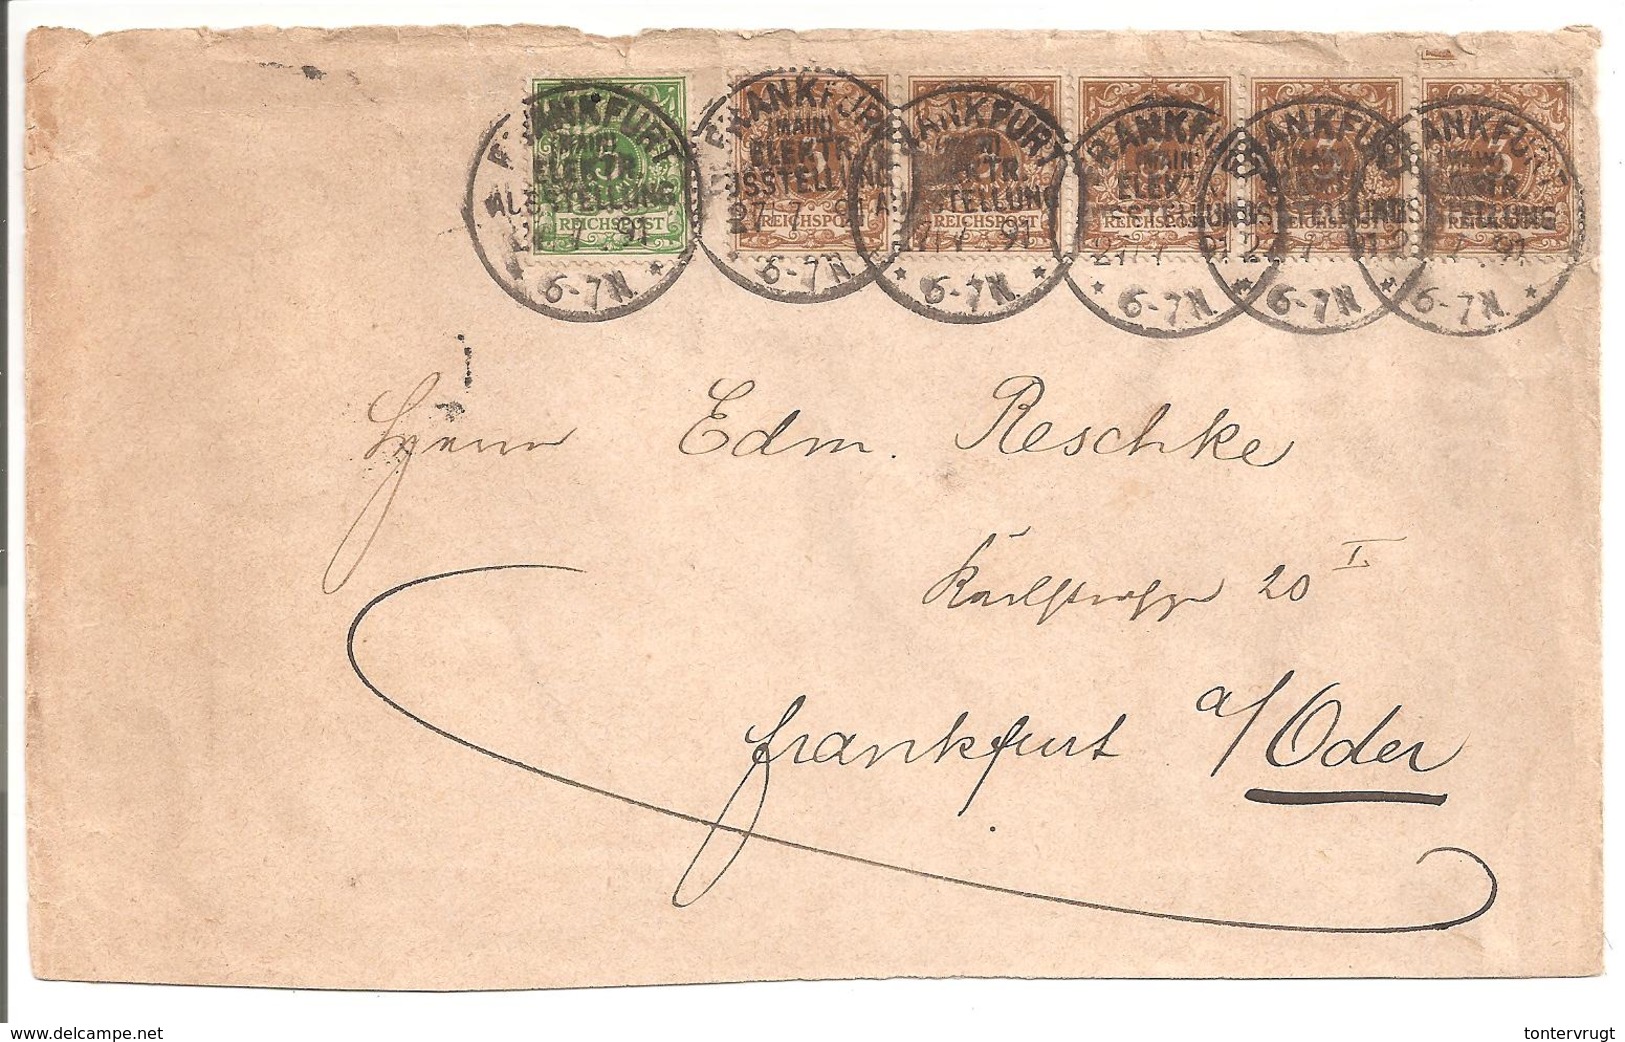 FRANKFURT FRANKFURT FRANKFURT FRANKFURT FRANKFURT FRANKFURT
(MAIN) (MAIN) (MAIN) (MAIN) (MAIN) (MAIN)
ELEKTR. ELEKTR. ELEKTR. ELEKTR. ELEKTR. ELEKTR.
AUSSTELLUNG AUSSTELLUNG AUSSTELLUNG AUSSTELLUNG AUSSTELLUNG AUSSTELLUNG
27/7 91 27/7 91 27/7 91 27/7 91 27/7 91 27/7 91
6-7N. 6-7N. 6-7N. 6-7N. 6-7N. 6-7N.
5 3 3 3 3 3
REICHSPOST REICHSPOST REICHSPOST REICHSPOST REICHSPOST REICHSPOST
Herrn Edm. Reschke
Karlstrasse 20 I.
Frankfurt a/Oder
www.delcampe.net
tontervrugt